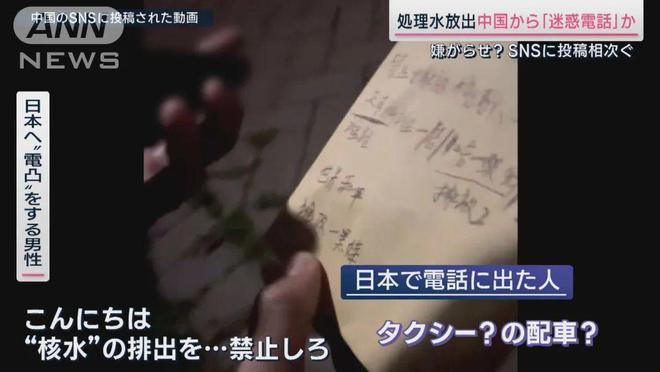 中国のSNSに投稿された動画
ANN
NEWS
処理水放出中国から「迷惑電話」か
嫌がらせ？SNSに投稿相次ぐ
日本へ“電凸”をする男性
日本で電話に出た人
こんにちは
“核水”の排出を…禁止しろ
タクシー？の配車？